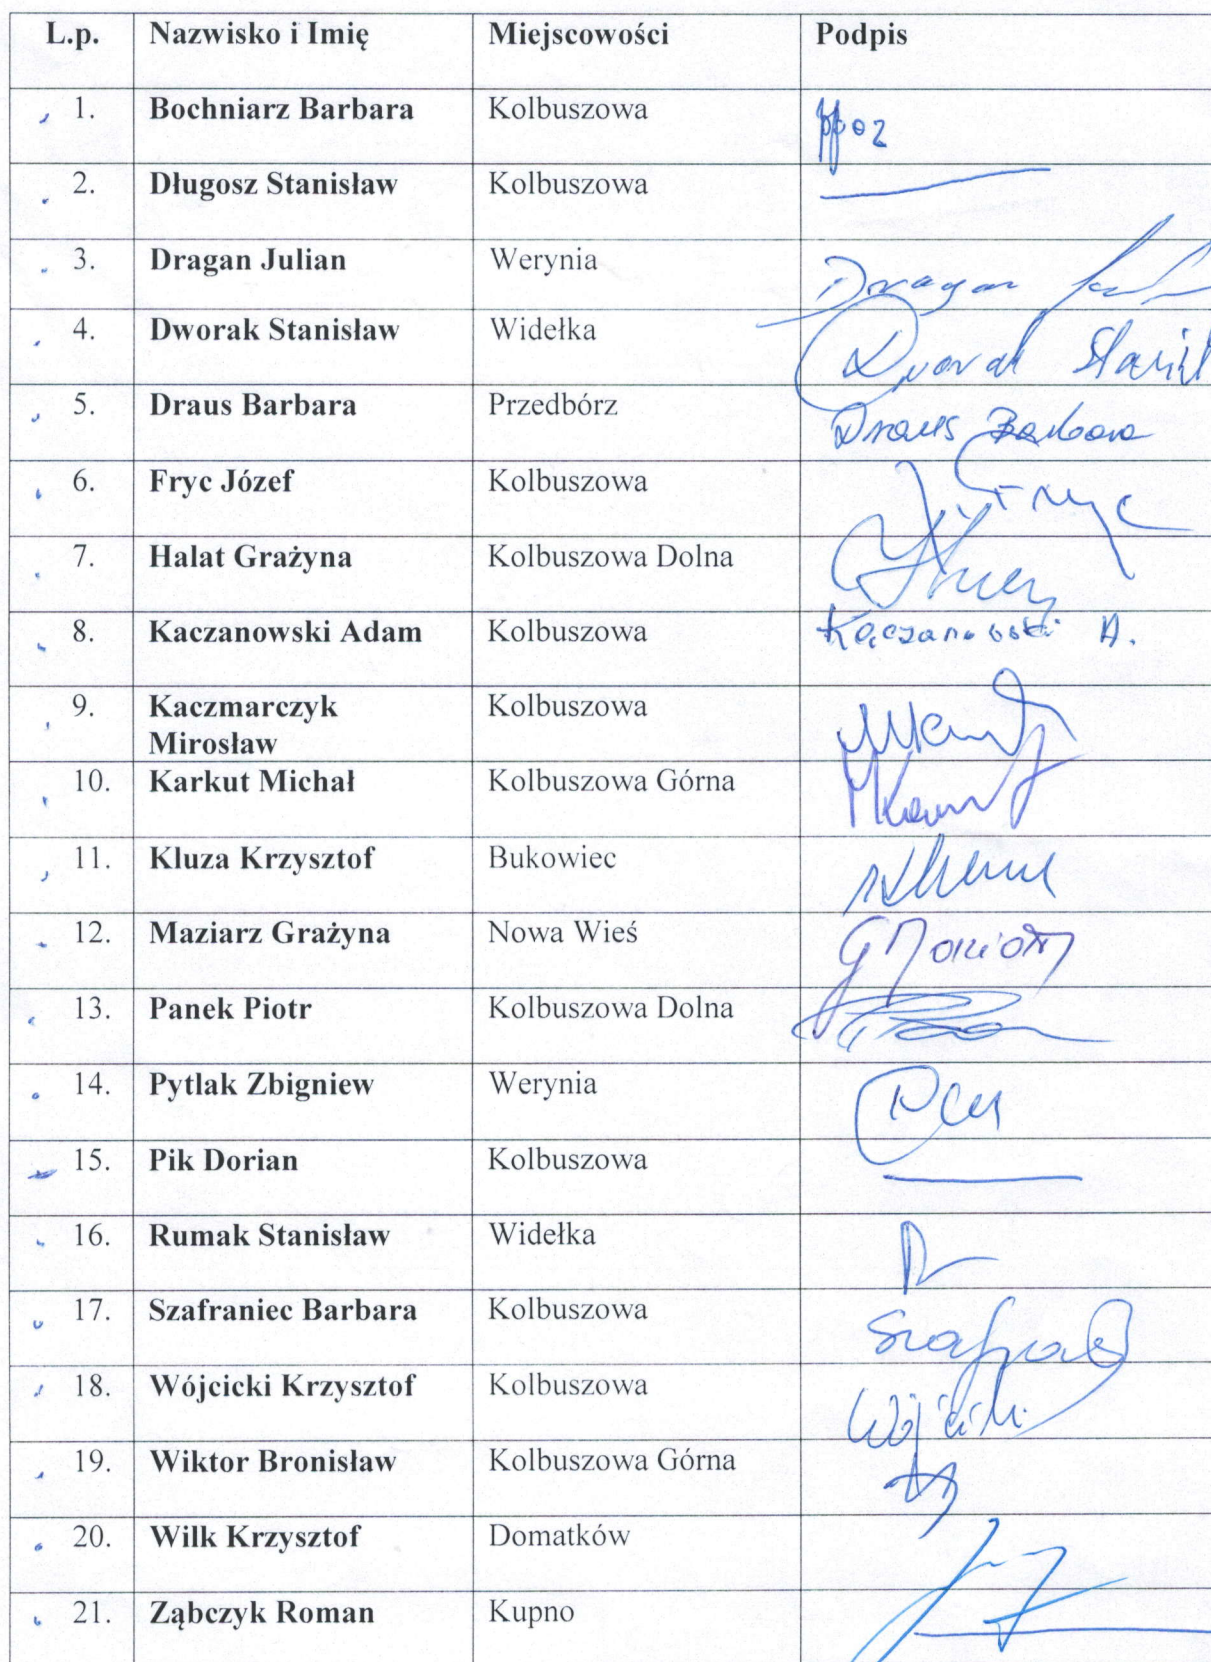 L.p. Nazwisko i Imię Miejscowości Podpis
1. Bochniarz Barbara Kolbuszowa
2. Długosz Stanisław Kolbuszowa
3. Dragan Julian Werynia Dragan
4. Dworak Stanisław Widełka Dworak
5. Draus Barbara Przedbórz Draus Barbara
6. Fryc Józef Kolbuszowa Fryc
7. Halat Grażyna Kolbuszowa Dolna
8. Kaczanowski Adam Kolbuszowa Kaczanowski A.
9. Kaczmarczyk Kolbuszowa
Mirosław
10. Karkut Michał Kolbuszowa Górna
11. Kluza Krzysztof Bukowiec
12. Maziarz Grażyna Nowa Wieś
13. Panek Piotr Kolbuszowa Dolna
14. Pytlak Zbigniew Werynia
15. Pik Dorian Kolbuszowa
16. Rumak Stanisław Widełka
17. Szafraniec Barbara Kolbuszowa
18. Wójcicki Krzysztof Kolbuszowa
19. Wiktor Bronisław Kolbuszowa Górna
20. Wilk Krzysztof Domatków
21. Ząbczyk Roman Kupno